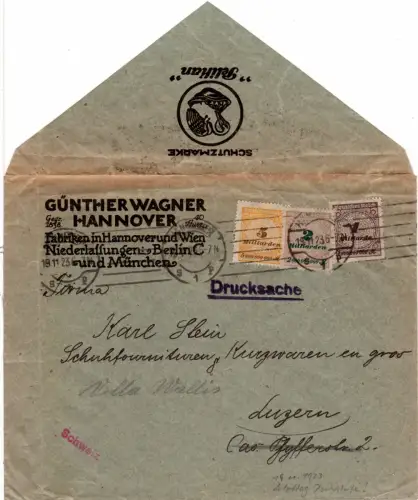 "Pelikan"
SCHUTZMARKE
GÜNTHER WAGNER
HANNOVER
Fabriken in Hannover und Wien
Niederlassungen: Berlin C
und München
Firma
19.11.23
19.11.23
5
Milliarden
2
Milliarden
Drucksache
Karl Stein
Schuhfournituren, Kurzwaren en gros
Villa Wallis
Luzern
Schweiz